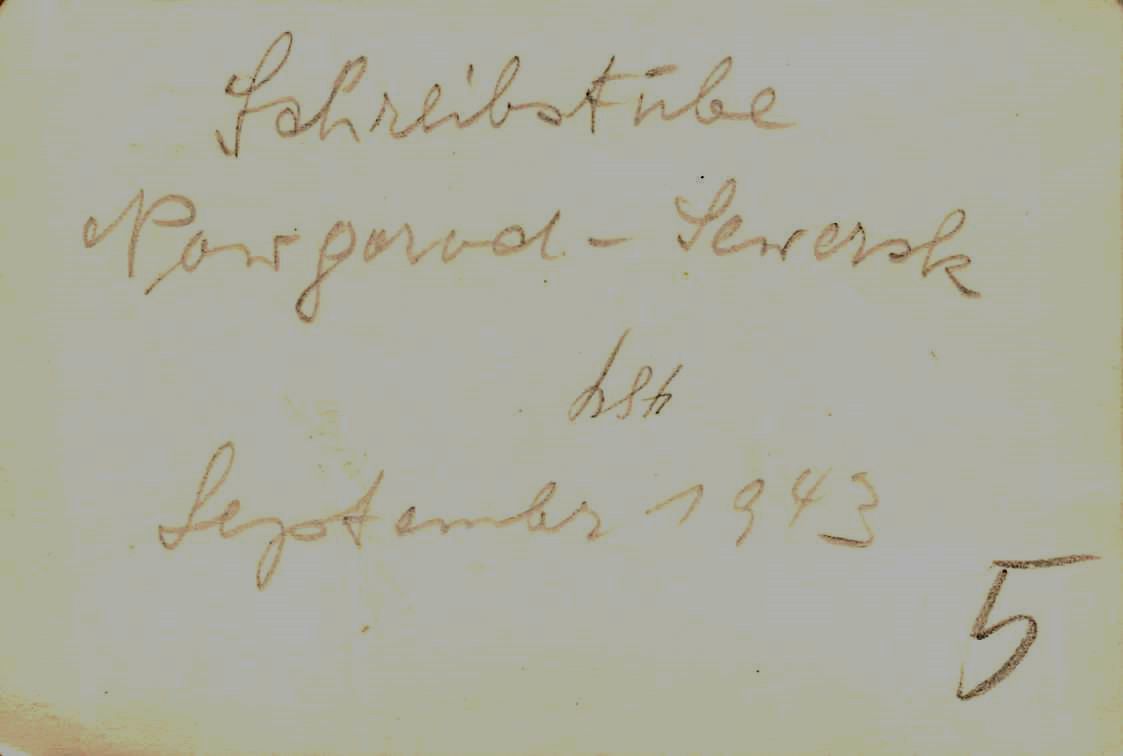 Schreibstube
Nowgorod - Sewersk
September 1943
5